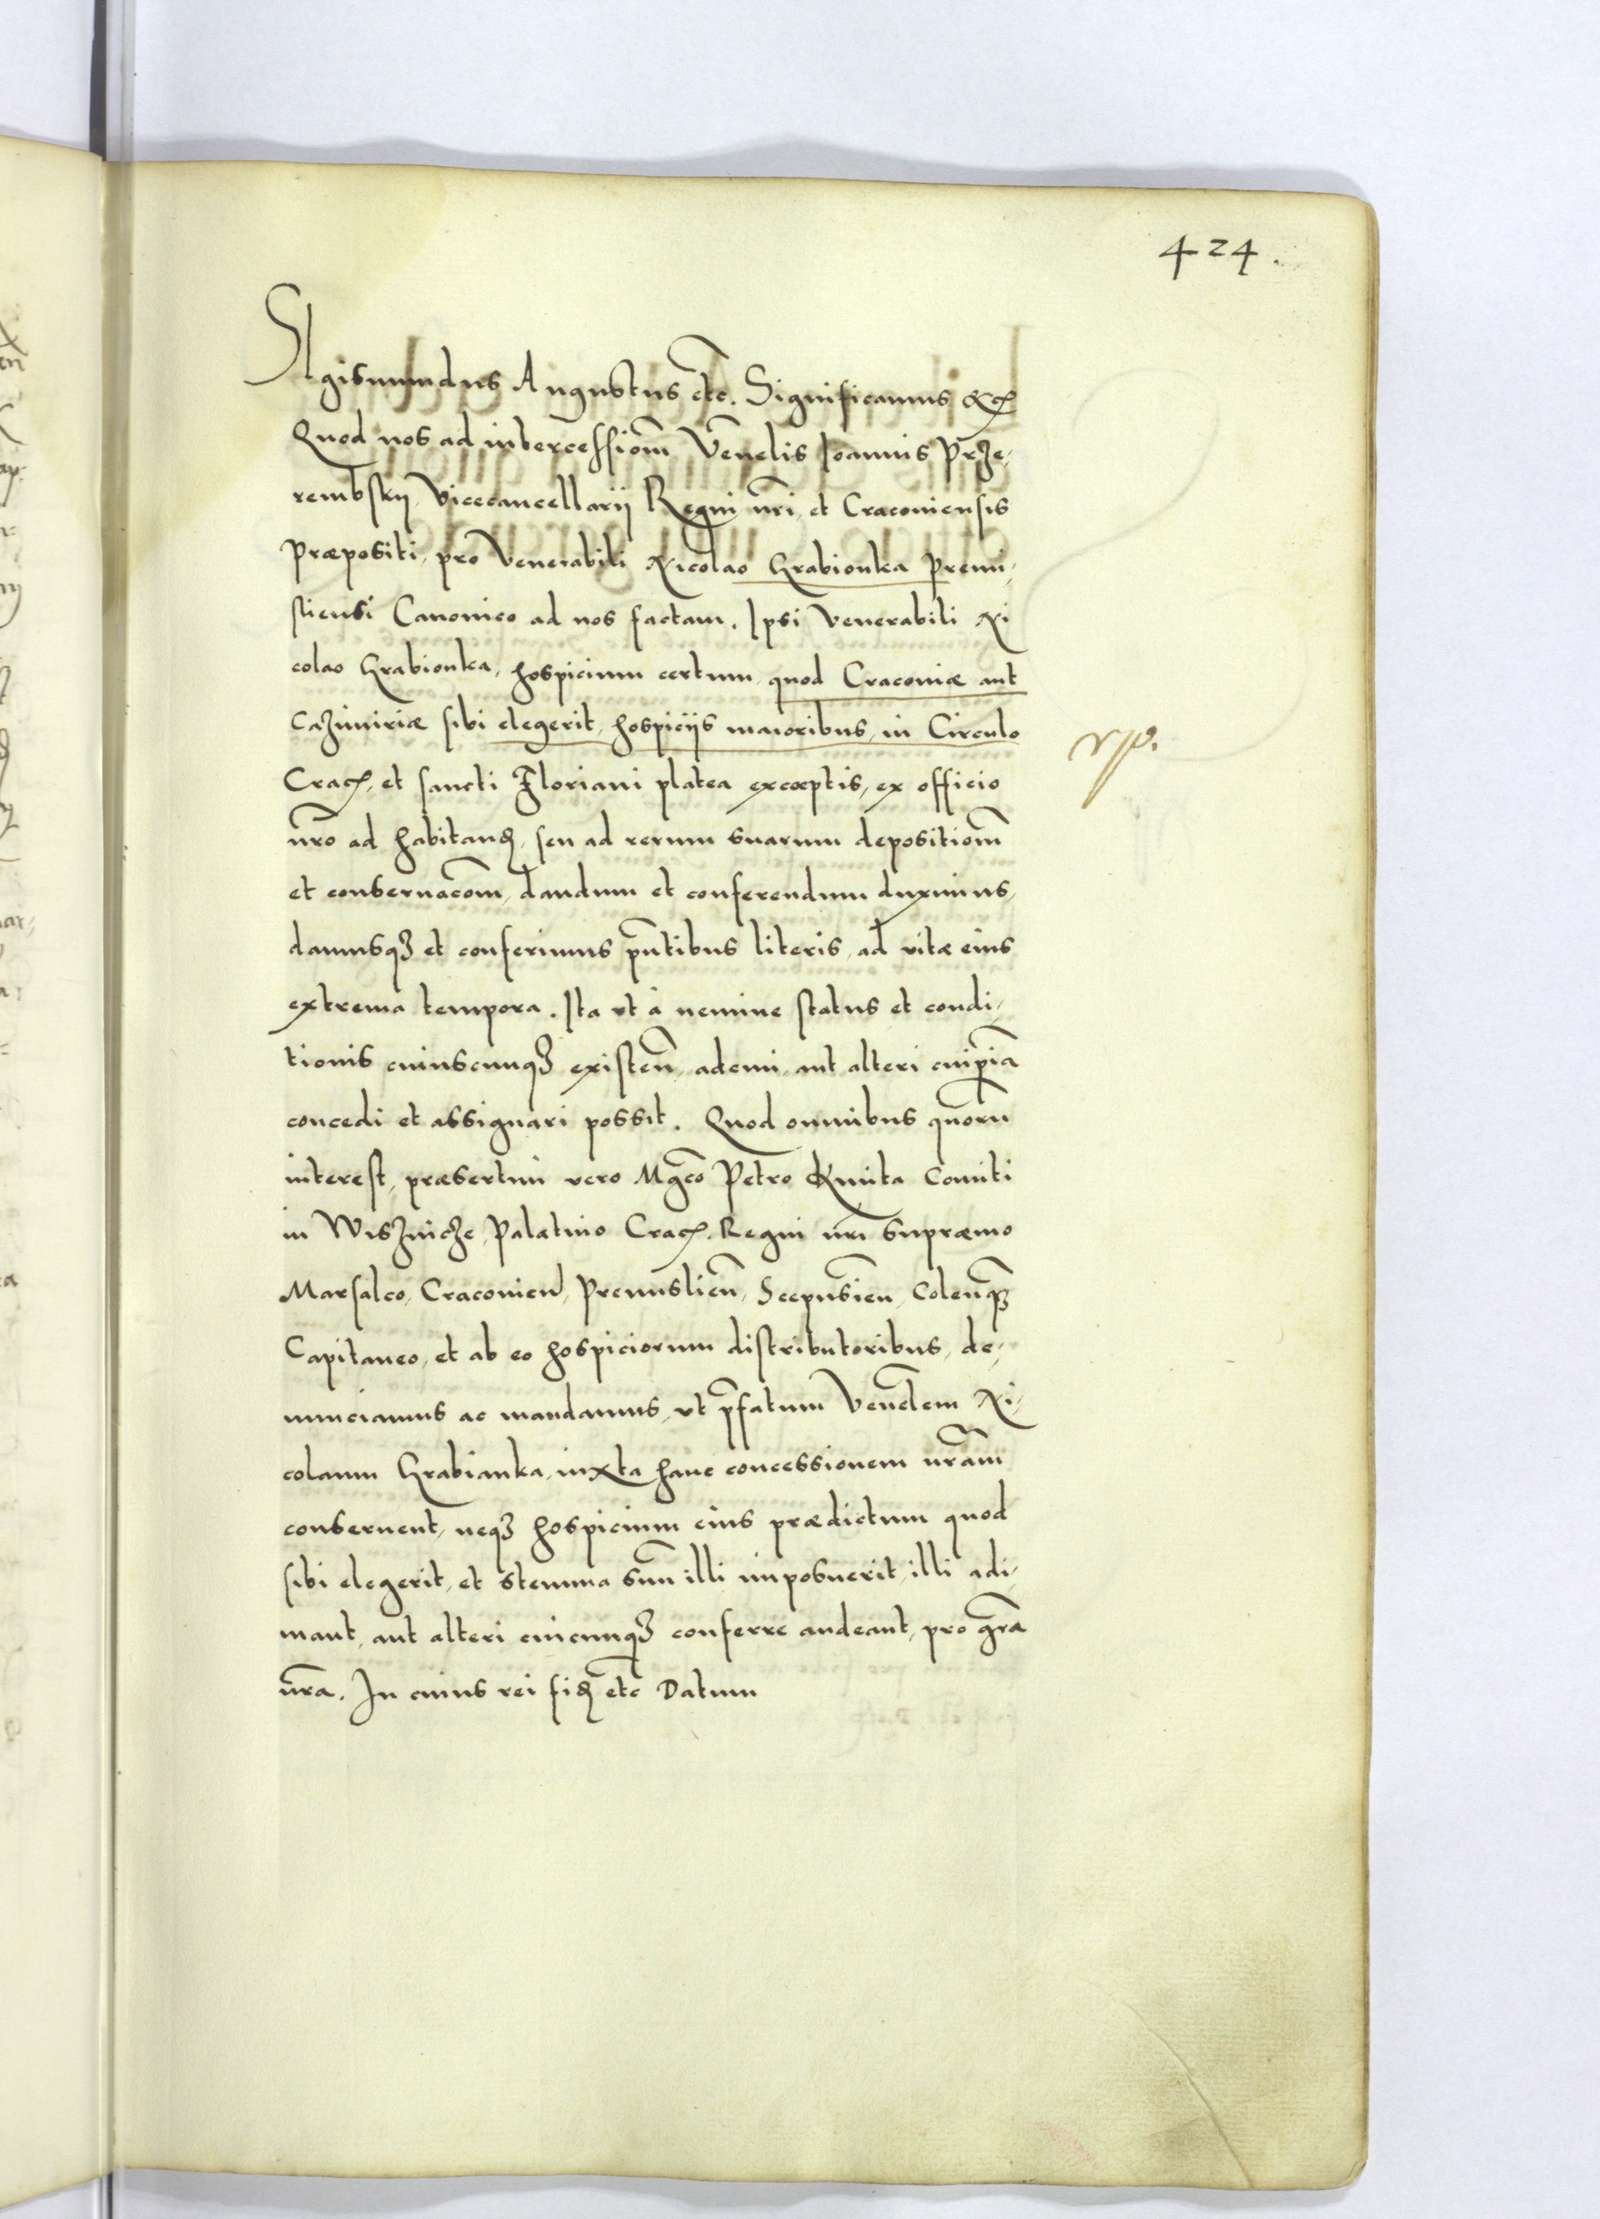 424.
Sigismundus Augustus etc. Significamus &c
Quod nos ad intercessiom̃ Veñelis Ioannis Prze,
rembskij Vicecancellarij Regni nr̃i, et Cracoviensis
Præpositi, pro Venerabili Nicolao Grabionka Premi,
sliensi Canonico ad nos factam. Ipsi Venerabili Ni
colao Grabionka, hospicium certum, quod Cracoviæ aut
Cazimiriæ sibi elegerit, hospicijs maioribus, in Circulo
Crac̃, et sancti Floriani platea exceptis, ex officio
nr̃o ad habitand̃, seu ad rerum suarum depositiom̃
et conservacom̃, dandum et conferendum duximus,
damusq3 et conferimus pñtibus literis, ad vitæ eius
extrema tempora. Ita vt à nemine status et condi,
tionis cuiuscunq3 existeñ, ademi, aut alteri cuipiã
concedi et assignari possit. Quod omnibus quorũ
interest, præsertim vero Mgc̃o Petro Kmita Comiti
in Wisznicze, Palatino Crac̃. Regni nr̃i supræmo
Marsalco, Cracovieñ, Premislieñ, Scepusieñ, Coleñq3
Capitaneo, et ab eo hospiciorum distributoribus, de,
nunciamus ac mandamus, vt p̃fatum Veñelem Ni,
colaum Grabianka, iuxta hanc concessionem nr̃am
conservent, neq3 hospicium eius prædictum quod
sibi elegerit, et stemma suũ illi imposuerit, illi adi,
mant, aut alteri cuicunq3 conferre audeant, pro gr̃a
nr̃a. In cuius rei fid̃ etc Datum